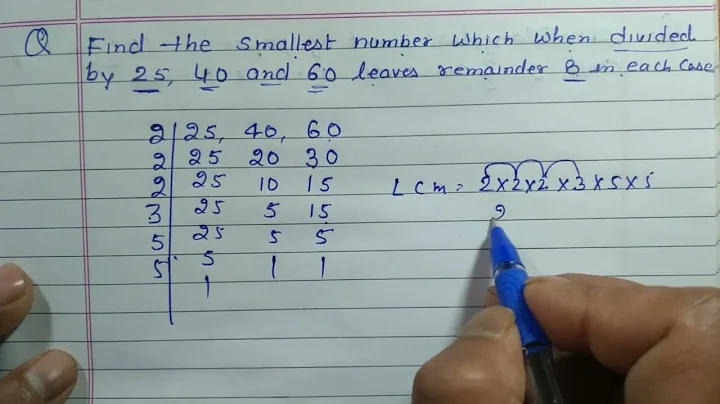 Q Find the smallest number which when divided
by 25, 40 and 60 leaves remainder 8 in each case
2 25, 40, 60
2 25 20 30
2 25 10 15
3 25 5 15
5 25 5 5
5 5 1 1
1
LCM = 2×2×2×3×5×5
2